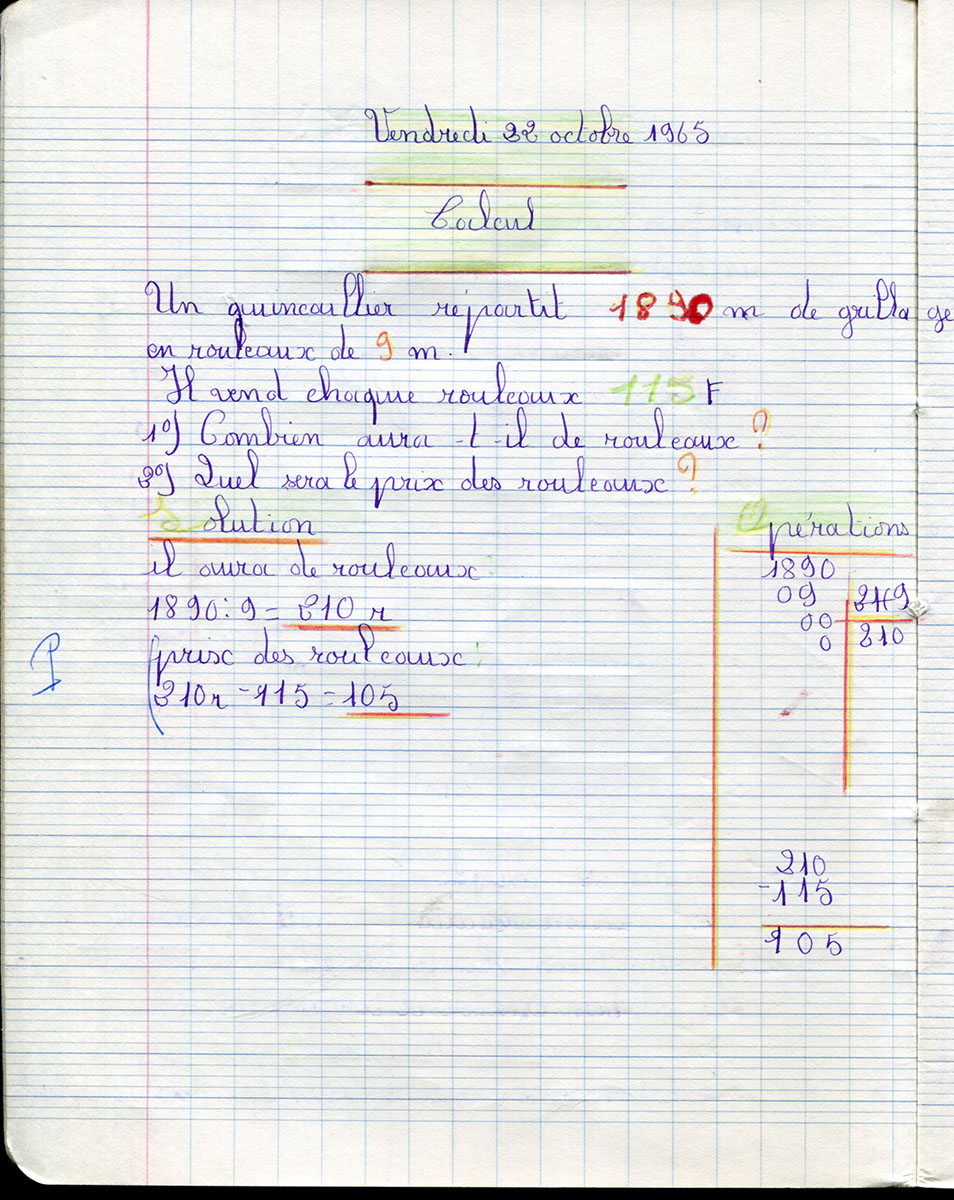 Vendredi 22 octobre 1965
Calcul
Un quincaullier répartit 1890 m de grilla ge
en rouleaux de 9 m.
Il vend chaque rouleaux 115 F
1º) Combien aura -t-il de rouleaux ?
2º) Quel sera le prix des rouleaux ?
Solution
il aura de rouleaux :
1890 : 9 = 210 r
prix des rouleaux :
210r - 115 = 105
Opérations
1890
09
9
00
210
0
210
-115
105